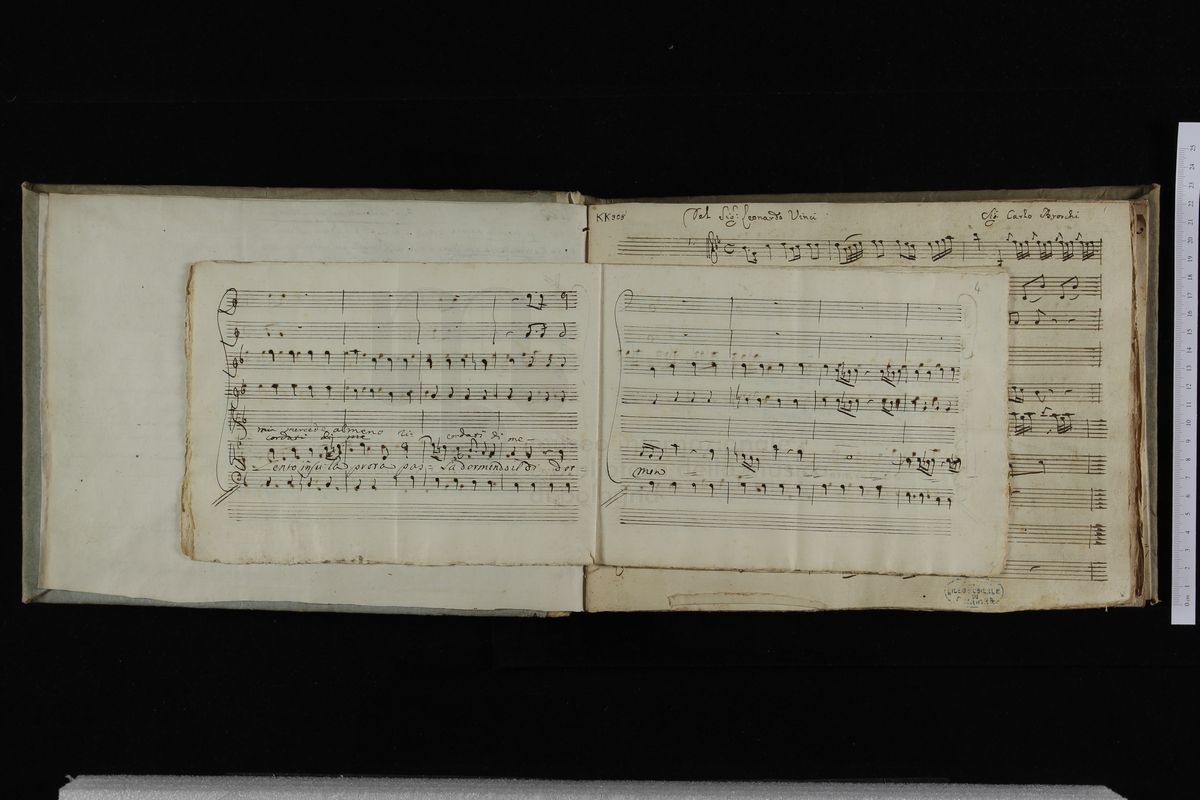 KK 303
Del Sig:r Leonardo Vinci
Sig. Carlo Broschi
4
mia mercede almeno ri-
cordati di me cordati di me
Lento insu la prora pas= sa dormendo il di dor-
men